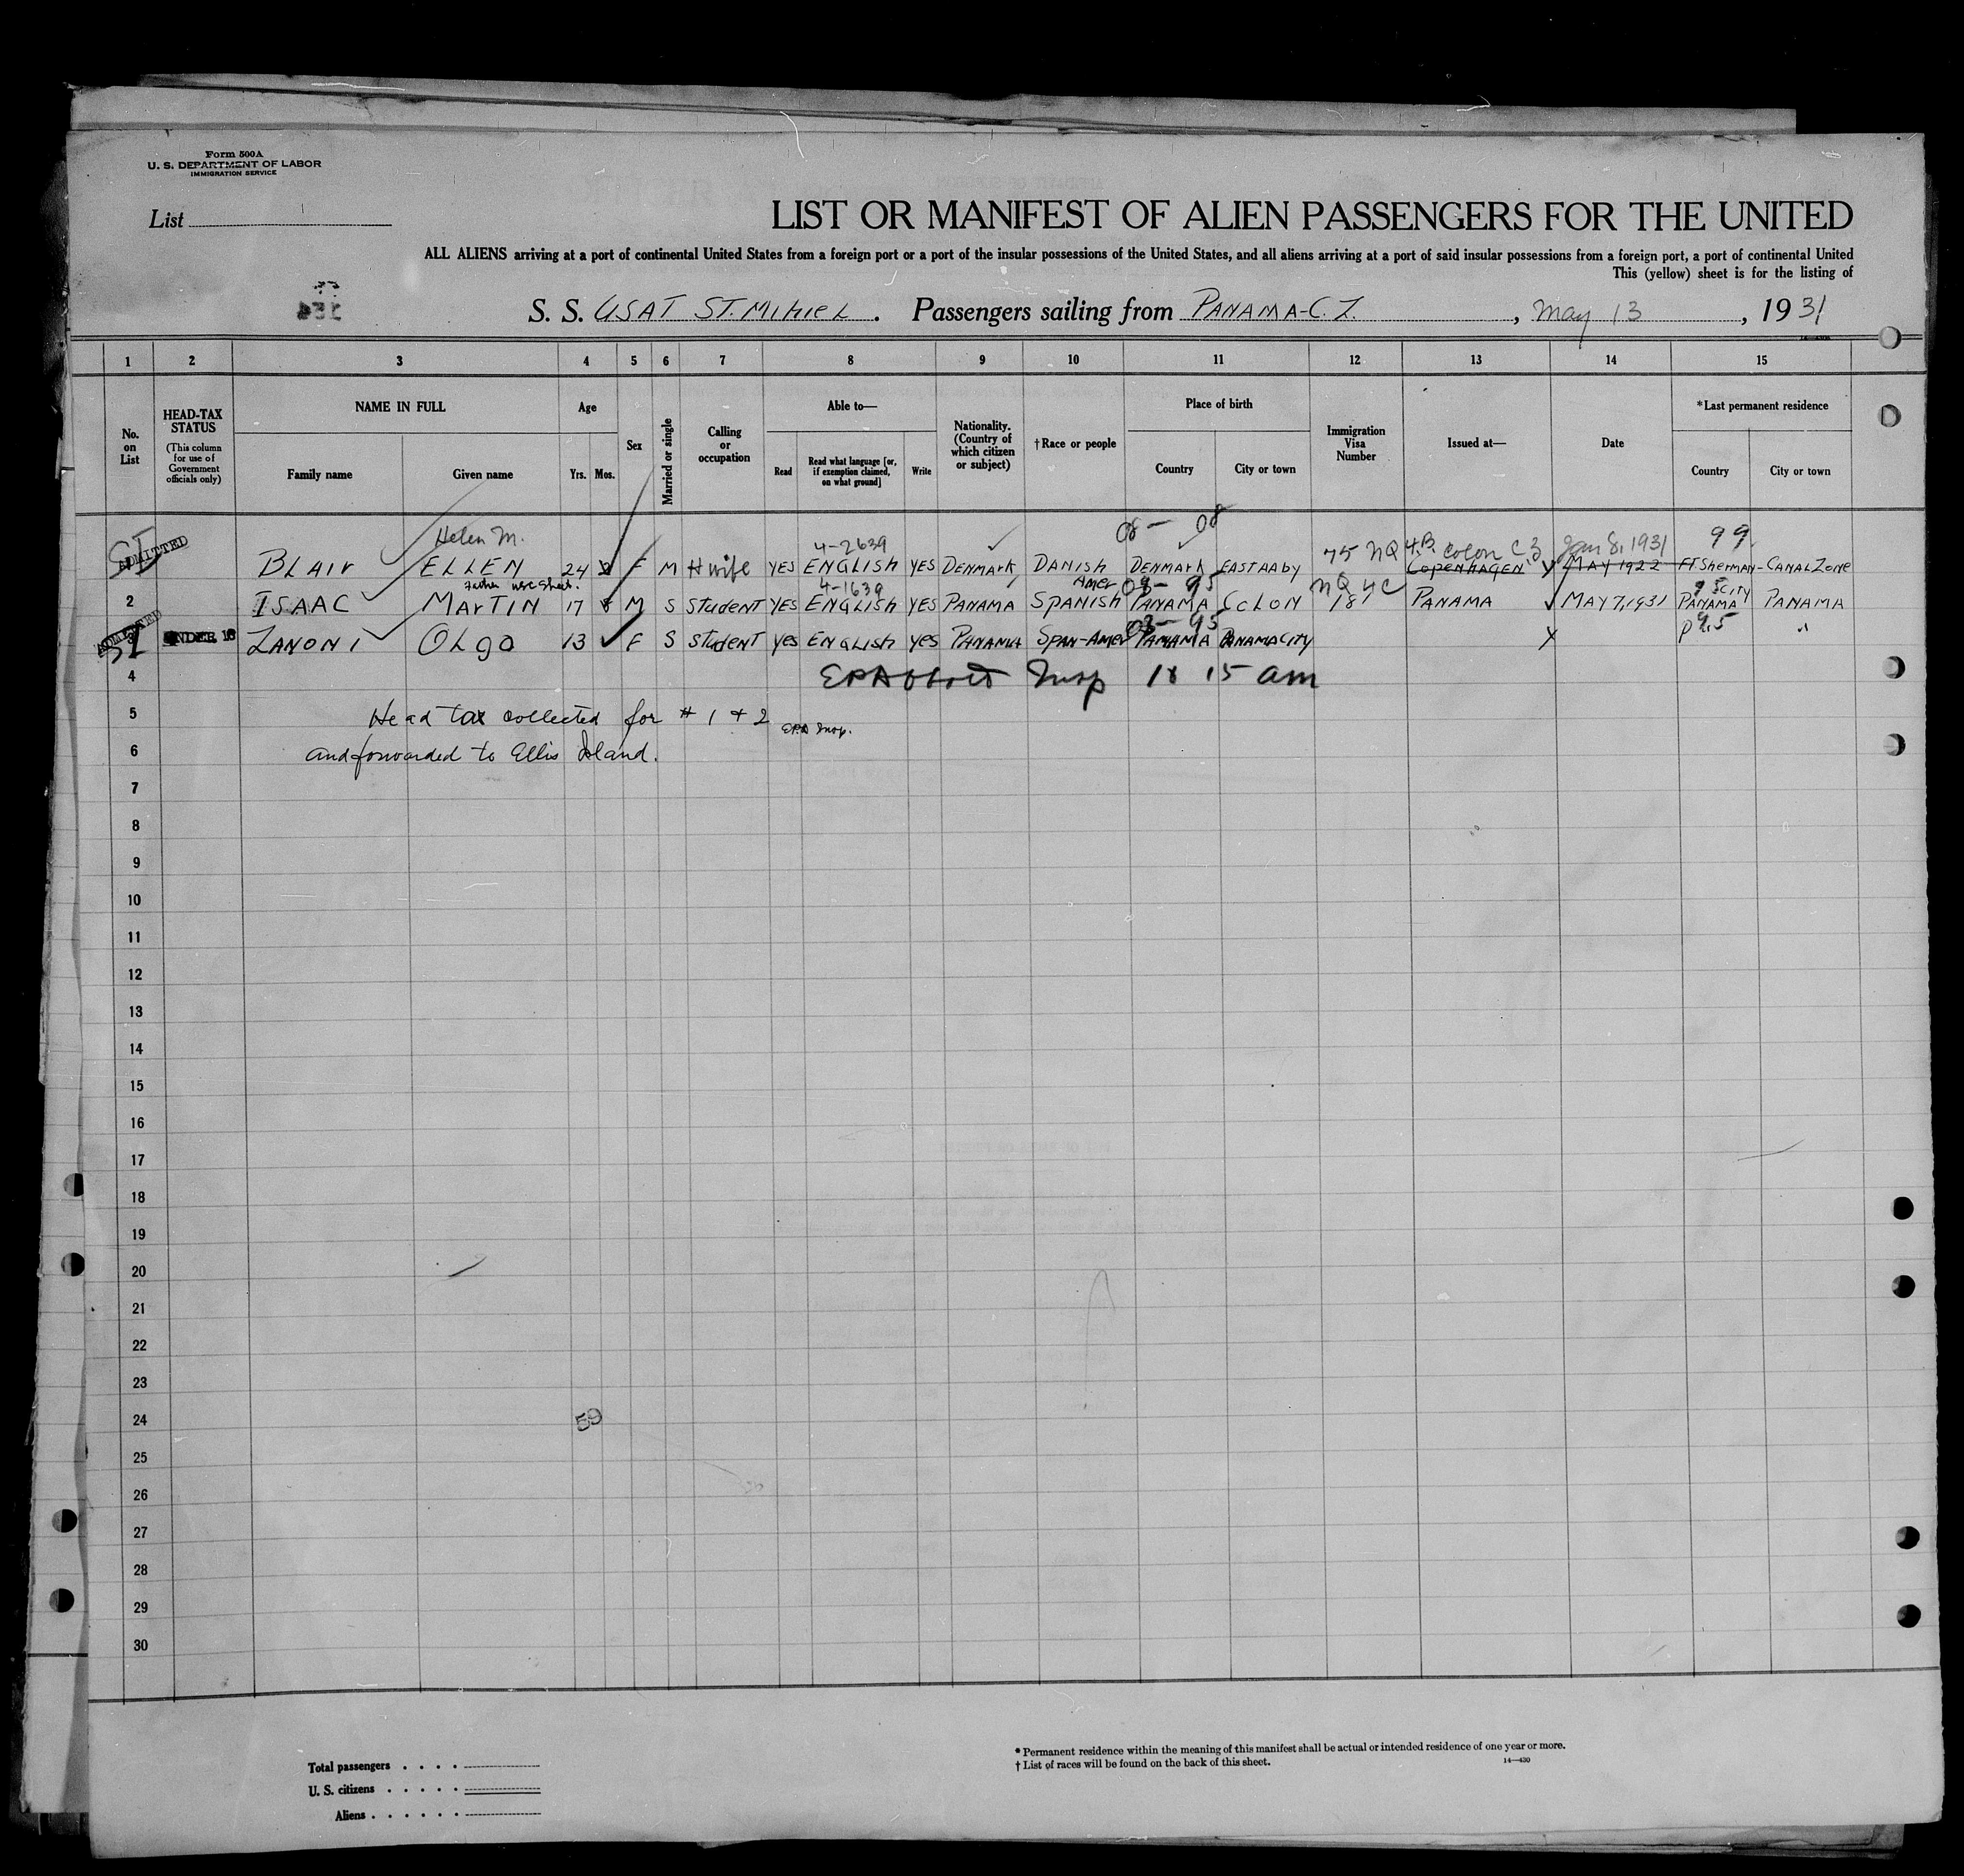 Form 500A
U. S. DEPARTMENT OF LABOR
IMMIGRATION SERVICE
List
LIST OR MANIFEST OF ALIEN PASSENGERS FOR THE UNITED
ALL ALIENS arriving at a port of continental United States from a foreign port or a port of the insular possessions of the United States, and all aliens arriving at a port of said insular possessions from a foreign port, a port of continental United
This (yellow) sheet is for the listing of
S. S. USAT ST. MIHIEL. Passengers sailing from PANAMA-C.Z. , May 13, 1931
1 2 3 4 5 6 7 8 9 10 11 12 13 14 15
No. on List
HEAD-TAX STATUS
(This column for use of Government officials only)
NAME IN FULL
Family name
Given name
Age
Yrs.
Mos.
Sex
Married or single
Calling or occupation
Able to—
Read
Read what language [or, if exemption claimed, on what ground]
Write
Nationality. (Country of which citizen or subject)
†Race or people
Place of birth
Country
City or town
Immigration Visa Number
Issued at—
Date
*Last permanent residence
Country
City or town
Helen M. 4-2639 08- 08 75 NQ 4.B. Colon C Z Jan 8, 1931 99
ADMITTED SI BLAIR ELLEN 24 F M H wife YES ENGLISH YES DENMARK DANISH DENMARK EASTAABY COPENHAGEN MAY 1922 FT SHERMAN-CANAL ZONE
4-1639 Amer 08- 95 NQ 4C 95 CITY
2 ISAAC MARTIN 17 M S STUDENT YES ENGLISH YES PANAMA SPANISH PANAMA COLON 181 PANAMA MAY 7, 1931 PANAMA PANAMA
ADMITTED 3 SI UNDER 16 ZANONI OLGA 13 F S STUDENT YES ENGLISH YES PANAMA SPAN-AMER 08- 95 PANAMA PANAMA CITY P 95 "
4 Insp 10 15 am
5 Head tax collected for # 1 + 2 Insp.
6 and forwarded to Ellis Island.
7
8
9
10
11
12
13
14
15
16
17
18
19
20
21
22
23
24 59
25
26
27
28
29
30
Total passengers
U. S. citizens
Aliens
* Permanent residence within the meaning of this manifest shall be actual or intended residence of one year or more.
† List of races will be found on the back of this sheet.
14—430